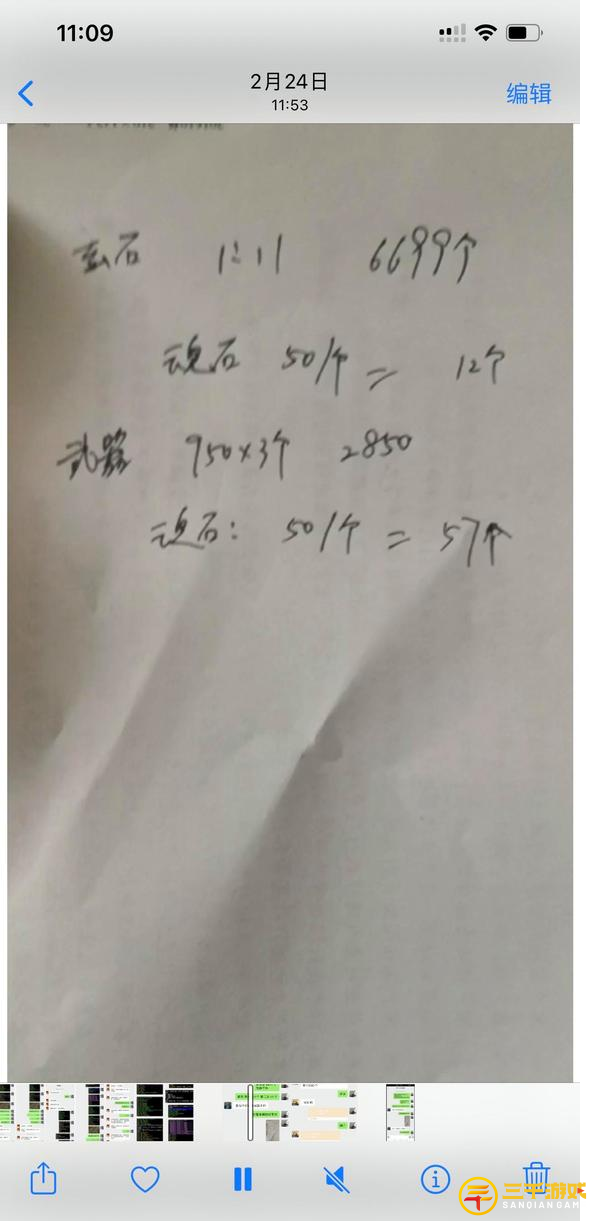 11:09
2月24日
11:53
编辑
玄石 1:11 6699个
魂石 50/个 = 12个
武器 950×3个 2850
魂石: 50/个 = 57个
三千游戏
SANQIAN GAME